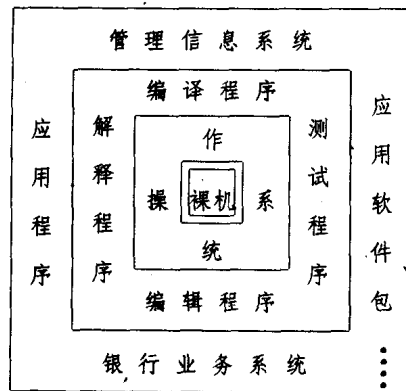 管理信息系统
编译程序
应用程序
解释程序
作
操
裸机
系
统
测试程序
应用软件包
编辑程序
银行业务系统